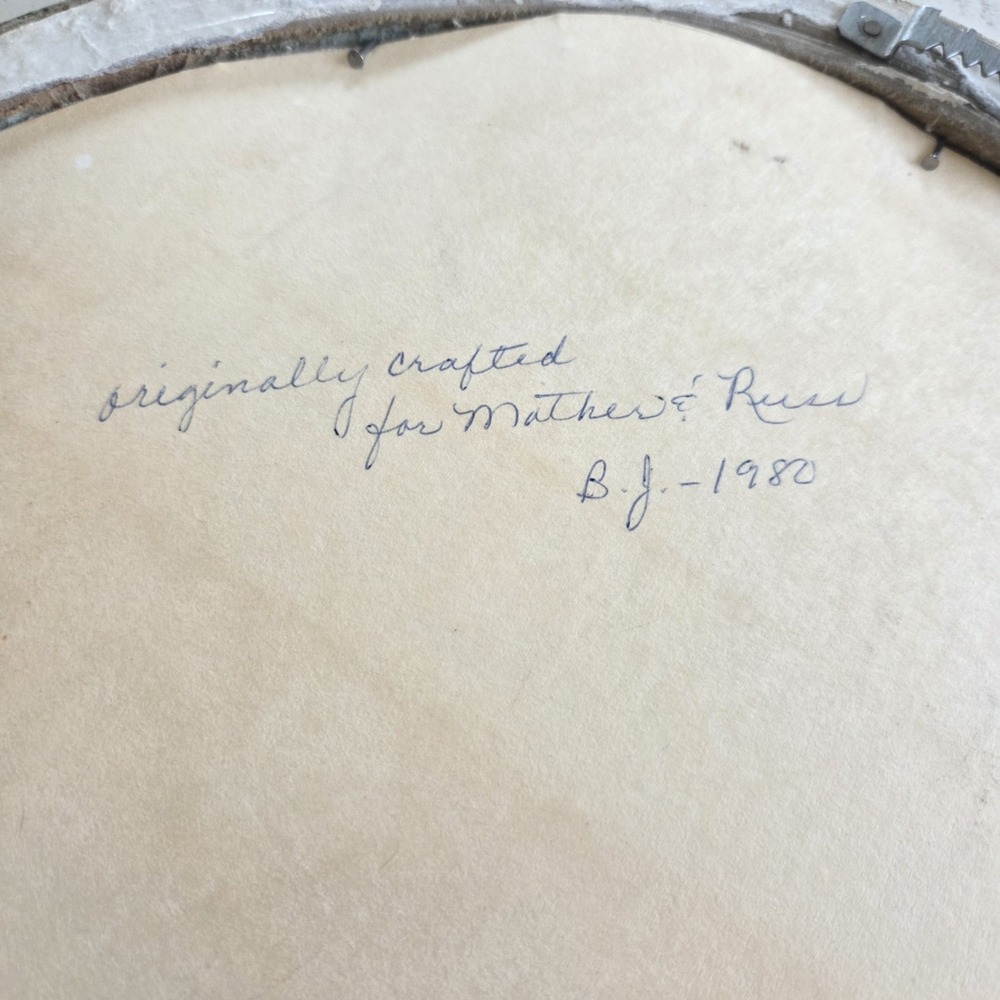 originally crafted
for Mother & Russ
B.J. - 1980